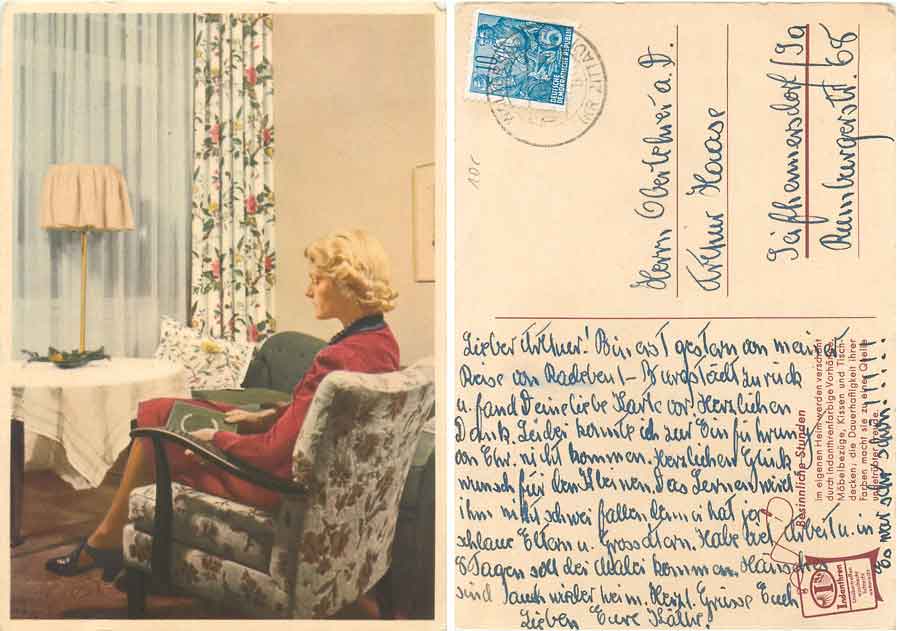 DEUTSCHE
DEMOKRATISCHE REPUBLIK
10
5
ZITTAU
10c
Herrn Oberlehrer a. D.
Arthur Haase
Seifhennersdorf / Sa
Rumburgerstr. 68
Lieber Arthur! Bin erst gestern von meiner
Reise von Radebeul - Burgstädt zurück
u. fand Deine liebe Karte vor. Herzlichen
Dank. Leider konnte ich zur Einführung
von Chr. nicht kommen. Herzlichen Glück
wunsch für den Kleinen. Das Lernen wird
ihm nicht schwer fallen, denn er hat ja
schlaue Eltern u. Grosseltern. Habe viel Arbeit u. in
8 Tagen soll der Maler kommen.
sind auch wieder heim. Herzl. Grüsse Euch
Lieben Eure Käthe.
Es war sehr schön!!!!!
Besinnliche Stunden
im eigenen Heim werden verschönt
durch Indanthrenfarbige Vorhänge,
Möbelbezüge, Kissen und Tisch-
decken; die Dauerhaftigkeit ihrer
Farben macht sie zu einer Quelle
ungetrübter Freude.
Indanthren